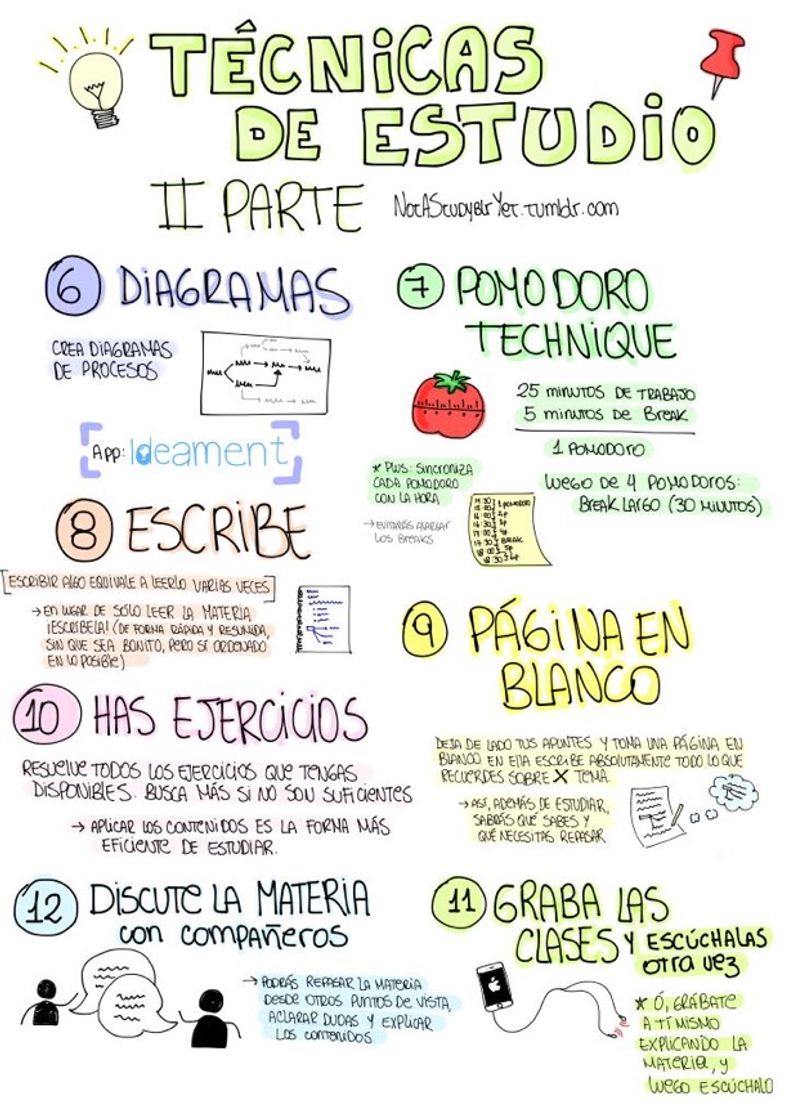 TÉCNICAS
DE ESTUDIO
II PARTE NotAStudyblrYet.tumblr.com
6 DIAGRAMAS
CREA DIAGRAMAS
DE PROCESOS
App: Ideament
7 POMODORO
TECHNIQUE
25 minutos DE TRABAJO
5 minutos DE Break
1 POMODORO
LUEGO DE 4 POMODOROS:
BREAK LARGO (30 MINUTOS)
* PLUS: SINCRONIZA
CADA POMODORO
CON LA HORA
→ EVITARÁS ALARGAR
LOS BREAKS
14:30
15:00 1 POMODORO
8 ESCRIBE
[ESCRIBIR ALGO EQUIVALE A LEERLO VARIAS VECES]
→ EN LUGAR DE SÓLO LEER LA MATERIA
¡ESCRÍBELA! (DE FORMA RÁPIDA Y RESUMIDA,
SIN QUE SEA BONITO, PERO SÍ ORDENADO
EN LO POSIBLE)
9 PÁGINA EN
BLANCO
DEJA DE LADO TUS APUNTES Y TOMA UNA PÁGINA EN
BLANCO. EN ELLA ESCRIBE ABSOLUTAMENTE TODO LO QUE
RECUERDES SOBRE X TEMA.
→ ASÍ, ADEMÁS DE ESTUDIAR,
SABRÁS QUÉ SABES Y
QUÉ NECESITAS REPASAR
10 HAS EJERCICIOS
RESUELVE TODOS LOS EJERCICIOS QUE TENGAS
DISPONIBLES. BUSCA MÁS SI NO SON SUFICIENTES
→ APLICAR LOS CONTENIDOS ES LA FORMA MÁS
EFICIENTE DE ESTUDIAR.
12 DISCUTE LA MATERIA
con compañeros
→ PODRÁS REPASAR LA MATERIA
DESDE OTROS PUNTOS DE VISTA,
ACLARAR DUDAS Y EXPLICAR
LOS CONTENIDOS
11 GRABA LAS
CLASES Y ESCÚCHALAS
OTRA VEZ
* Ó, GRÁBATE
A TÍ MISMO
EXPLICANDO LA
MATERIA, Y
LUEGO ESCÚCHALO